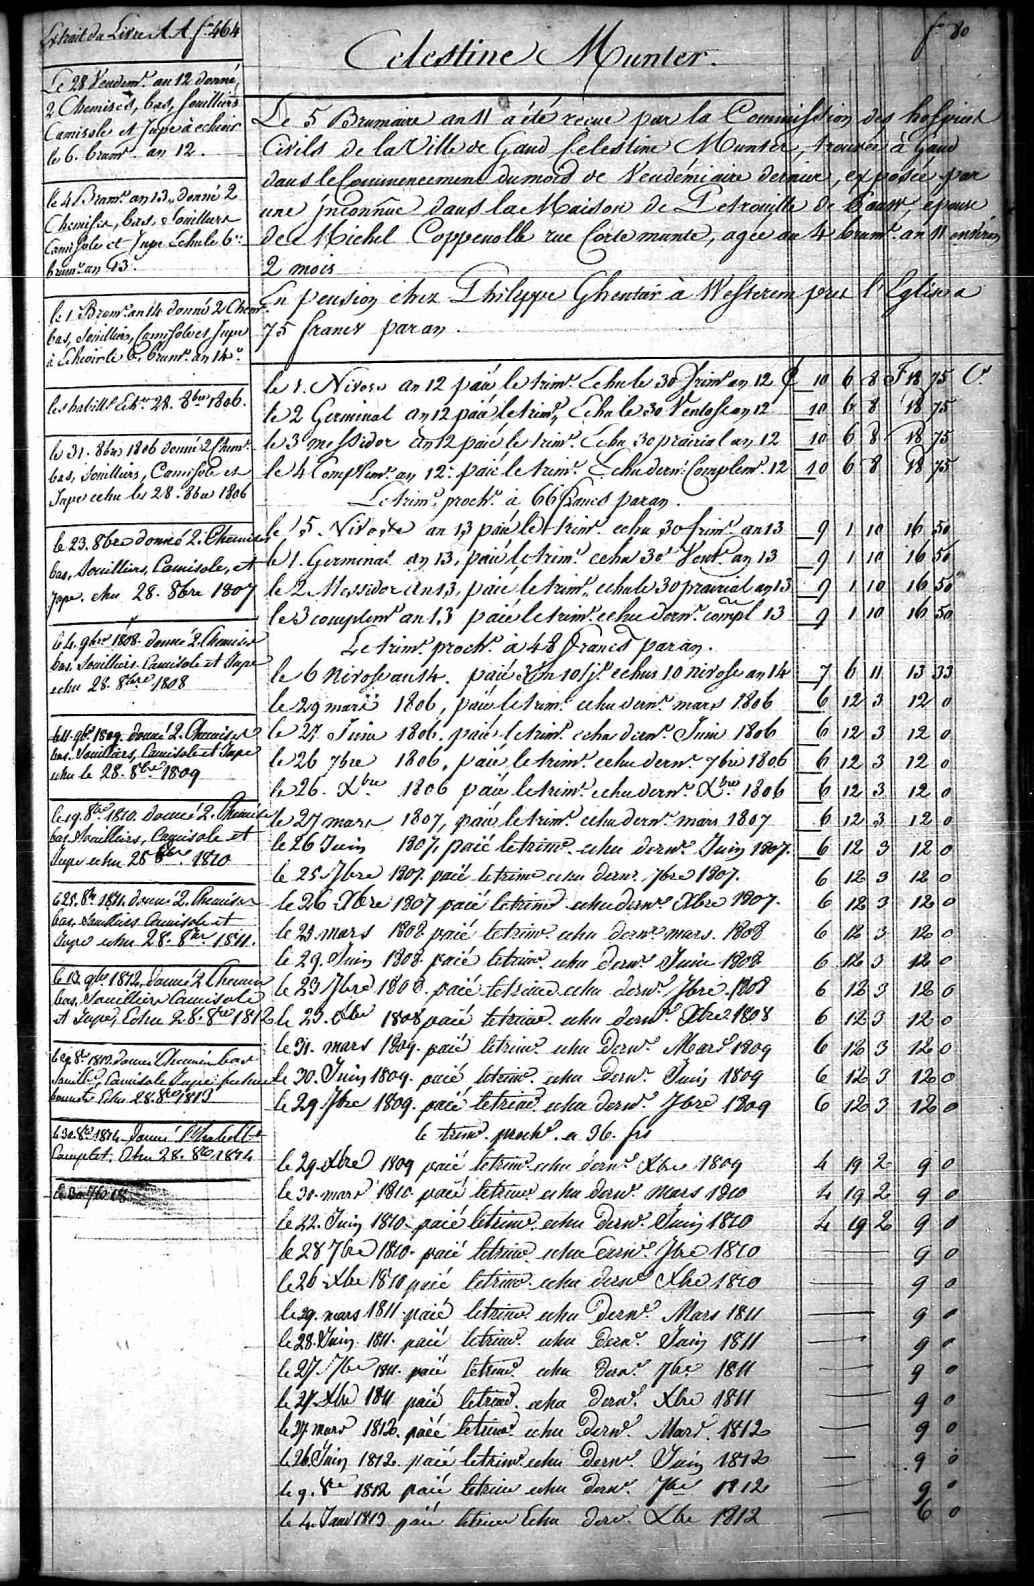 Extrait du Livre AA f.º 464
fº 80
Celestine Munter.
Le 28 Vendemr. an 12 donné,
2 Chemises, bas, Souilliers
Camisole et Jupe à echeoir
le 6. brumr. an 12.
le 4 Brumr. an 13, donné 2
Chemises, bas, Souilliers
Camisole et Jupe Echu le 6
brumr. an 13.
le 1 Brumr. an 14 donné 2 Chem.
bas, Souilliers, Camisole et Jupe
à Echeoir le 6. brumr. an 14.
les habillts. Echu 28. 8bre 1806.
le 31. 8bre 1806 donné 2 Chemr.
bas, Souilliers, Camisole et
Jupe echu les 28. 8bre 1806
le 23. 8bre donné 2. Chemises
bas, Souilliers, Camisole, et
Jupe. echu 28. 8bre 1807
le 4. 9bre 1808. donné 2. Chemises
bas, Souilliers. Camisole et Jupe
echu 28. 8bre 1808
le 11. 9bre 1809. donné 2. Chemises
bas. Souilliers, Camisole et Jupe
echu le 28. 8bre 1809
le 19. 8bre 1810. donné 2. Chemises
bas, Souilliers, Camisole et
Jupe echu 28 8bre 1810
le 25. 8bre 1811. donné 2. Chemises
bas, Souilliers Camisole et
Jupe echu 28. 8bre 1811.
le 13. 9bre 1812, donné 2 Chemises
bas, Souilliers Camisole
et Jupe, Echu 28. 8bre 1812
8bre 1813. donné Chemise bas
Souilliers, Camisole Jupe
Echu 28. 8bre 1813
le 30. 8bre 1814 donné l'habillt.
Complet. Echu 28. 8bre 1814
le 30 7bre 18
Le 5 Brumaire an 11 a été recue par la Commission des hospices
Civils de la Ville de Gand Celestine Munter, trouvée à Gand
dans le Commencement du mois de Vendémiaire dernier, exposée par
une inconnue dans la Maison de Petronille de bouw, epouse
de Michel Coppenolle rue Corte munte, agée au 4 brumr. an 11 environ
2 mois
En pension chez Philippe Ghentar à Westerem près l'Eglise a
75 francs par an.
le 1. Nivose an 12 paié le trimr. Echu le 30 frimr. an 12 £ 10 6 8 F 18 75 Cs
le 2 Germinal an 12 paié le trimr. Echu le 30 Ventose an 12 10 6 8 18 75
le 3 messidor an 12 paié le trimr. Echu 30 prairial an 12 10 6 8 18 75
le 4 Complemr. an 12. paié le trimr. Echu dern. Complemr. 12 10 6 8 18 75
Le trimr. prochr. à 66 francs par an
le 5. Nivose an 13 paié le trimr. echu 30 frimr. an 13 9 1 10 16 50
le 1. Germinal an 13, paié le trimr. echu 30 Vent. an 13 9 1 10 16 50
le 2 Messidor an 13, paié le trimr. echu le 30 prairial an 13 9 1 10 16 50
le 3 complemr. an 13 paié le trimr. echu dernr. compl 13 9 1 10 16 50
Le trimr. prochr. à 48 francs par an.
le 6 Nivose an 14. paié 3 m 10 j. echus 10 nivose an 14 7 6 11 13 33
le 29 mars 1806, paié le trimr. echu dernr. mars 1806 6 12 3 12 0
le 27. Juin 1806. paié le trimr. echu dernr. Juin 1806 6 12 3 12 0
le 26 7bre 1806, paié le trimr. echu dernr. 7bre 1806 6 12 3 12 0
le 26. Xbre 1806 paié le trimr. echu dernr. Xbre 1806 6 12 3 12 0
le 27 mars 1807, paié le trimr. echu dernr. mars 1807 6 12 3 12 0
le 26 Juin 1807, paié le trimr. echu dernr. Juin 1807. 6 12 3 12 0
le 25 7bre 1807. paié le trimr. echu dernr. 7bre 1807. 6 12 3 12 0
le 26 Xbre 1807 paié le trimr. echu dernr. Xbre 1807. 6 12 3 12 0
le 23 mars 1808 paié le trimr. echu dernr. mars. 1808 6 12 3 12 0
le 29. Juin 1808. paié le trimr. echu dernr. Juin 1808 6 12 3 12 0
le 23 7bre 1808. paié le trimr. echu dernr. 7bre 1808 6 12 3 12 0
le 23. Xbre 1808 paié le trimr. echu dernr. Xbre 1808 6 12 3 12 0
le 31. mars 1809. paié le trimr. echu Dernr. Mars 1809 6 12 3 12 0
le 30. Juin 1809. paié le trimr. echu Dernr. Juin 1809 6 12 3 12 0
le 29 7bre 1809. paié le trimr. echu Dernr. 7bre 1809 6 12 3 12 0
le trimr. prochr. a 36. frs
le 29. Xbre 1809 paié le trimr. echu dernr. Xbre 1809 4 19 2 9 0
le 30. mars 1810. paié le trimr. echu dernr. Mars 1810 4 19 2 9 0
le 22. Juin 1810. paié le trimr. echu Dernr. Juin 1810 4 19 2 9 0
le 28 7bre 1810. paié le trimr. echu Dernr. 7bre 1810 9 0
le 26 Xbre 1810 paié le trimr. echu dernr. Xbre 1810 9 0
le 29. mars 1811. paié le trimr. echu Dernr. Mars 1811 9 0
le 28. Juin. 1811. paié le trimr. echu Dernr. Juin 1811 9 0
le 27. 7bre 1811. paié le trimr. echu Dernr. 7bre 1811 9 0
le 27. Xbre 1811 paié le trimr. echu dernr. Xbre 1811 9 0
le 27 mars 1812. paié le trimr. echu Dernr. Mars. 1812 9 0
le 26. Juin 1812. paié le trimr. echu Dernr. Juin 1812 9 0
le 9. 8bre 1812 paié le trimr. echu dernr. 7bre 1812 9 0
le 4. Janr 1813 paié le trimr. Echu dernr. Xbre 1812 6 0